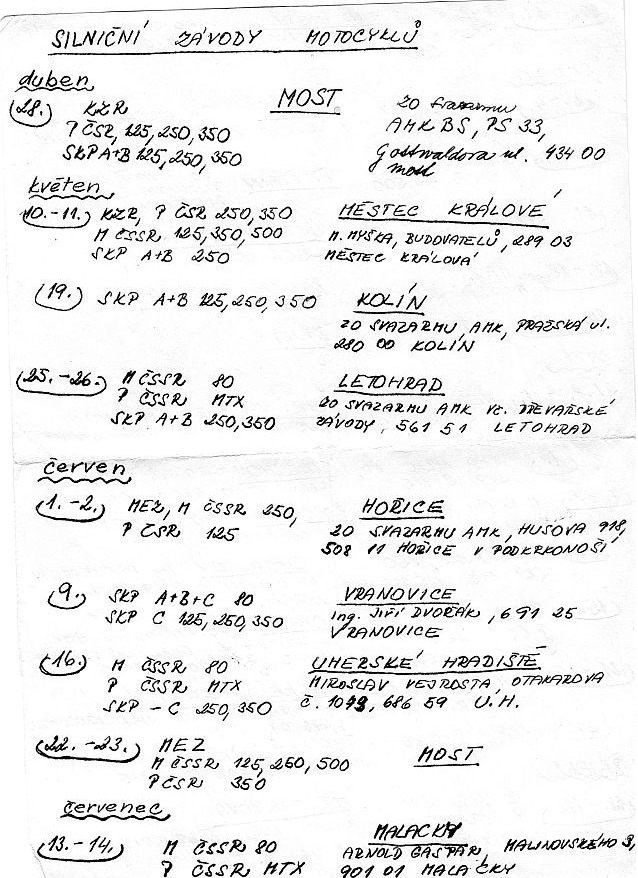 SILNIČNÍ ZÁVODY MOTOCYKLŮ
duben
28. KZR MOST ZO Svazarmu
P ČSR, 125, 250, 350 AMK BS, PS 33,
SKP A+B 125, 250, 350 Gottwaldova ul. 434 00
Most
květen
10.-11. KZR, P ČSR 250, 350 MĚSTEC KRÁLOVÉ
M ČSSR 125, 350, 500 M. MYŠKA, BUDOVATELŮ, 289 03
SKP A+B 250 MĚSTEC KRÁLOVÁ
19. SKP A+B 125, 250, 350 KOLÍN
ZO SVAZARMU, AMK, PRAŽSKÁ ul.
280 00 KOLÍN
25.-26. M ČSSR 80 LETOHRAD
P ČSSR MTX ZO SVAZARMU AMK VČ. DŘEVAŘSKÉ
SKP A+B 250, 350 ZÁVODY, 561 51 LETOHRAD
červen
1.-2. MEZ, M ČSSR 250, HOŘICE
P ČSR 125 ZO SVAZARMU AMK, HUSOVA 918,
508 11 HOŘICE V PODKRKONOŠÍ
9. SKP A+B+C 80 VRANOVICE
SKP C 125, 250, 350 ing. JIŘÍ DVOŘÁK, 691 25
VRANOVICE
16. M ČSSR 80 UHERSKÉ HRADIŠTĚ
P ČSSR MTX MIROSLAV VEJROSTA, OTAKAROVA
SKP - C 250, 350 č. , 686 59 U.H.
22.-23. MEZ MOST
M ČSSR 125, 250, 500
P ČSR 350
červenec
13.-14. M ČSSR 80 MALACKY
P ČSSR MTX ARNOLD GAŠPAR, MALINOVSKÉHO 3,
901 01 MALAČKY